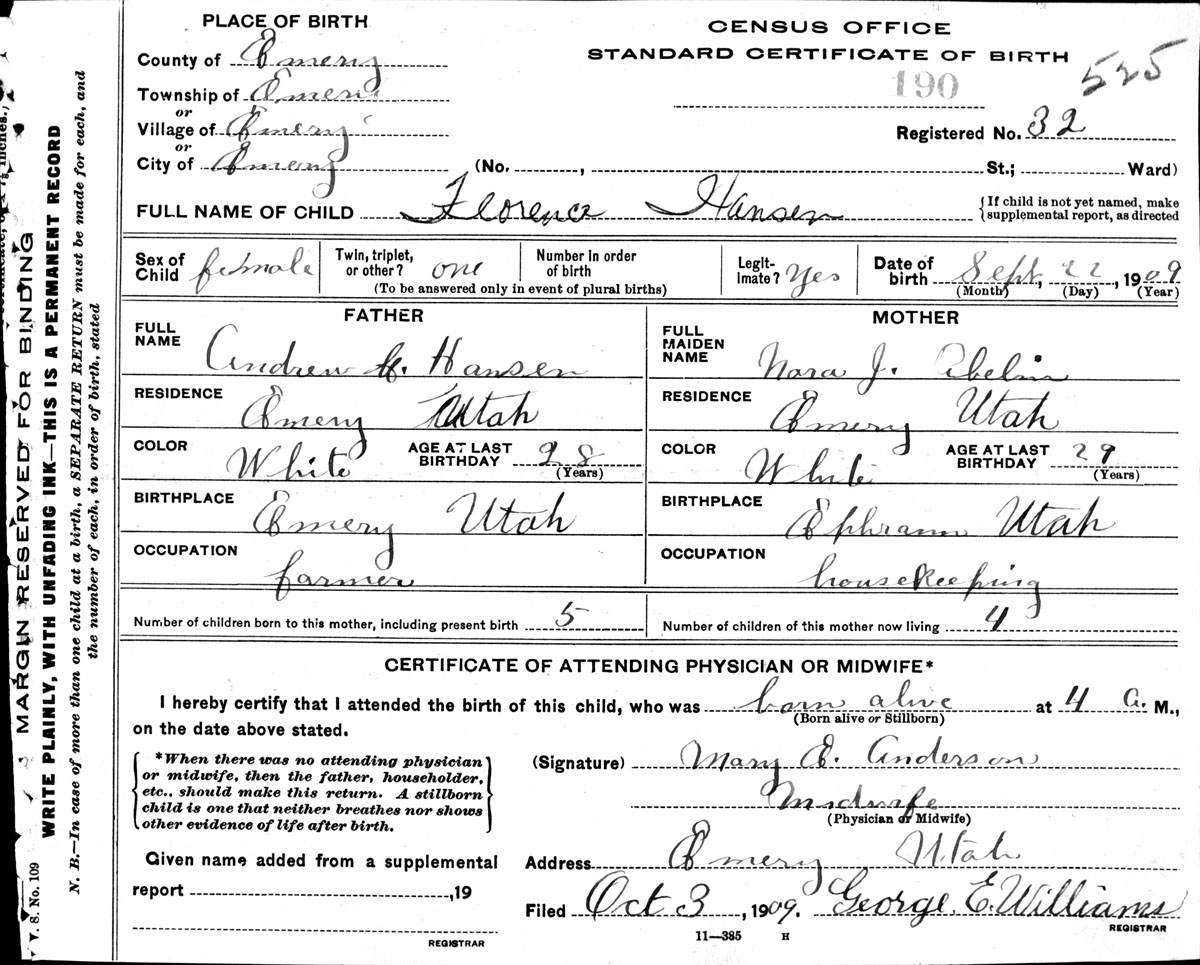 PLACE OF BIRTH
CENSUS OFFICE
STANDARD CERTIFICATE OF BIRTH
525
190
County of Emery
Township of Emery
or
Village of Emery
or
City of Emery (No. , St.; Ward)
Registered No. 32
FULL NAME OF CHILD Florence Hansen
{If child is not yet named, make
supplemental report, as directed
Sex of Child female
Twin, triplet, or other? one
Number in order of birth
(To be answered only in event of plural births)
Legitimate? Yes
Date of birth Sept. 22, 1909
(Month) (Day) (Year)
FATHER
FULL NAME
Andrew Hansen
RESIDENCE
Emery Utah
COLOR White
AGE AT LAST BIRTHDAY 28
(Years)
BIRTHPLACE
Emery Utah
OCCUPATION
farmer
MOTHER
FULL MAIDEN NAME
Nora J. Abelin
RESIDENCE
Emery Utah
COLOR White
AGE AT LAST BIRTHDAY 29
(Years)
BIRTHPLACE
Ephraim Utah
OCCUPATION
housekeeping
Number of children born to this mother, including present birth 5
Number of children of this mother now living 4
CERTIFICATE OF ATTENDING PHYSICIAN OR MIDWIFE*
I hereby certify that I attended the birth of this child, who was born alive at 4 a. M.,
(Born alive or Stillborn)
on the date above stated.
*When there was no attending physician
or midwife, then the father, householder,
etc., should make this return. A stillborn
child is one that neither breathes nor shows
other evidence of life after birth.
(Signature) Mary E. Anderson
Midwife
(Physician or Midwife)
Given name added from a supplemental
report ,19
REGISTRAR
Address Emery Utah
Filed Oct 3, 1909. George E. Williams
REGISTRAR
11—385 H
MARGIN RESERVED FOR BINDING
WRITE PLAINLY, WITH UNFADING INK—THIS IS A PERMANENT RECORD
N. B.—In case of more than one child at a birth, a SEPARATE RETURN must be made for each, and
the number of each, in order of birth, stated
V. S. No. 109